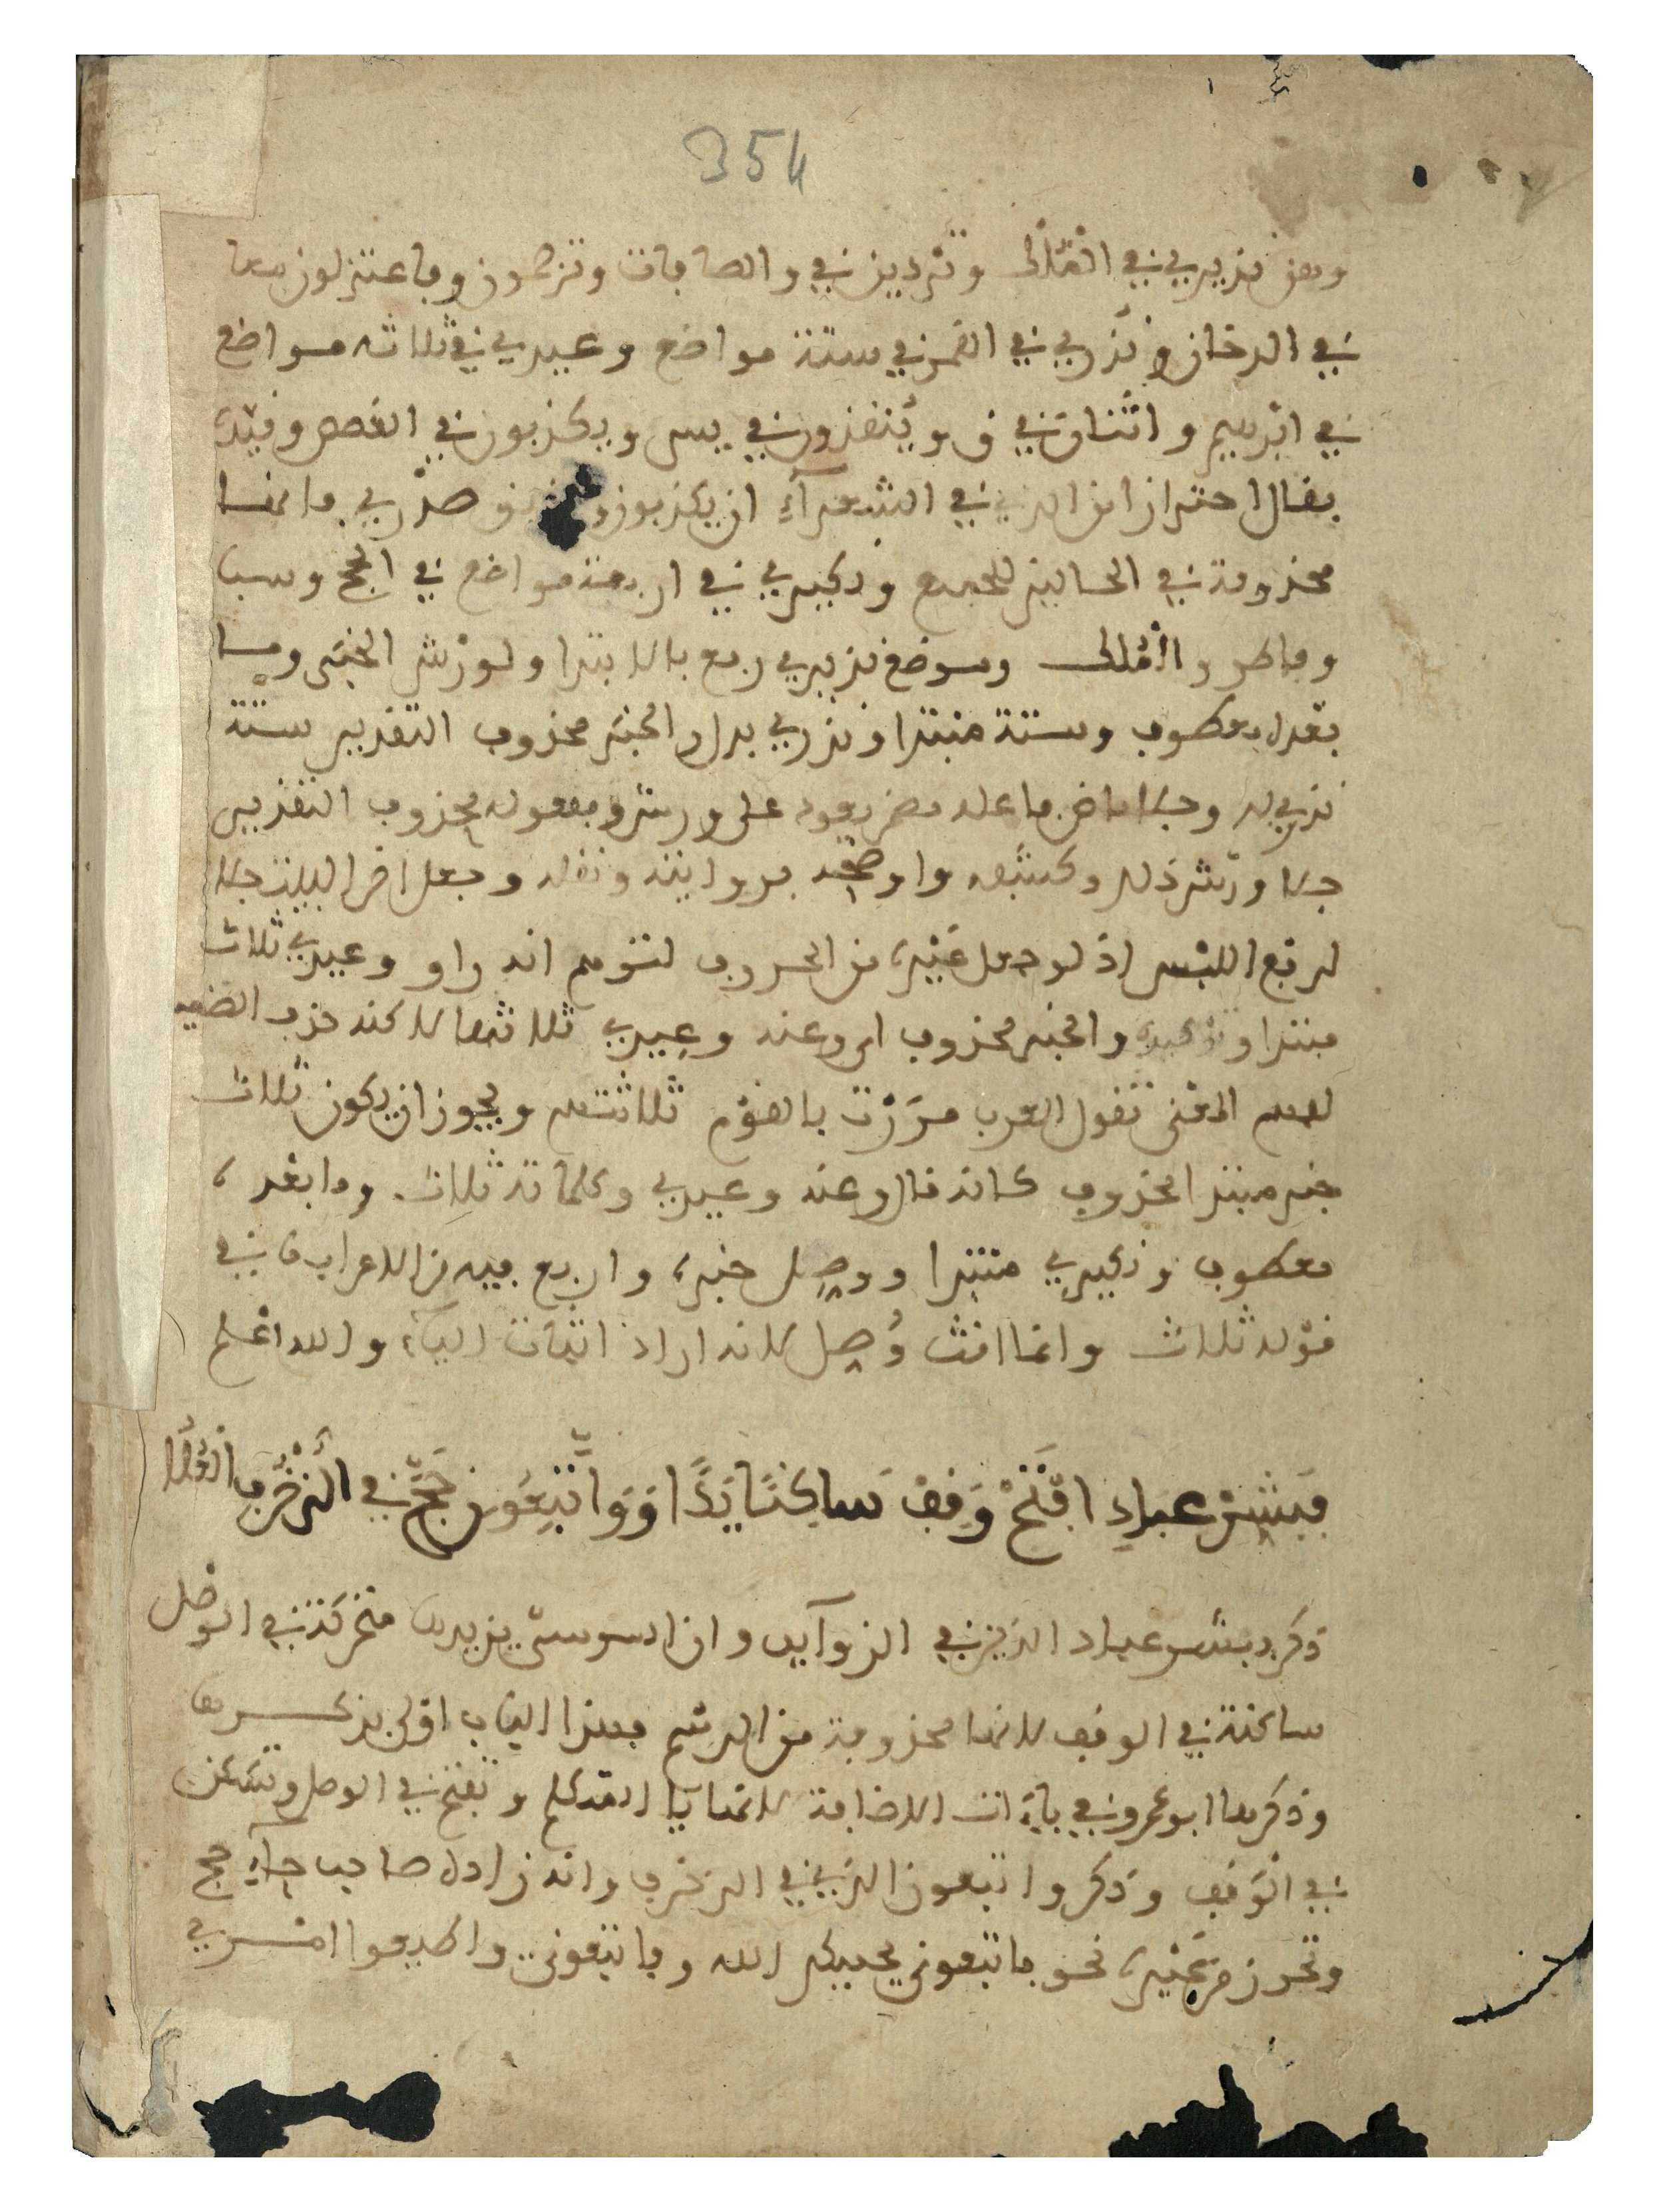 354
وهن نذيري في الملك وتردين في والصافات وترجمون وفاعتزلون معا
في الدخان ونذري في القمر في ستة مواضع وعيدي في ثلاثة مواضع
في ابرهيم واثنان في ق وينقذون في يس ويكذبون في القصص وقيده
بقال احترازا من الذي في الشعرآء ان يكذبون صدري فانها
محذوفة في الحالين للجميع ونكيري في اربعة مواضع في الحج وسبا
وفاطر والملك وموضع نذيري رفع بالابتدا ولورش الخبر وما
بعده معطوف وستة مبتدا ونذري بدل والخبر محذوف التقدير ستة
نذري له وجلا ماض فاعله مضمر يعود على ورش ومفعوله محذوف التقدير
جلا ورش ذلك وكشفه واوضحه بروايته ونقله وجعل اخر البيت جلا
لرفع اللبس اذ لو جعل غيره من الحروف لتوهم انه راو وعيدي ثلاث
مبتدا وتوكيده والخبر محذوف اي وعنه وعيدي ثلاثها لاكنه حذف الضمير
لفهم المعنى تقول العرب مررت بالقوم ثلاثتهم ويجوز ان يكون ثلاث
خبر مبتدا محذوف كانه قال وعنه وعيدي وكلماته ثلاث وما بعده
معطوف ونكيري مبتدا ووصل خبره واربع فيه من الاعراب ما في
قوله ثلاث وانما انث وُصل لانه اراد اثبات اليآء والله اعلم
فَبَشِّرْ عِبَادِ افْتَحْ وَقِفْ سَاكِنًا يَدًا وَوَاتَّبِعُونِ حَجَّ فِي الزُّخْرُفِ الْعُلَا
ذكر فبشر عباد الذين في الزوآيد وان السوسي يزيدها متحركة في الوصل
ساكنة في الوقف لانها محذوفة من الرسم فهذا الباب اولى بذكرها
وذكرها ابو عمرو في ياءات الاضافة لانها يا المتكلم وتفتح في الوصل وتسكن
في الوقف وذكر واتبعون الذي في الزخرف وانه زاده صاحب حآء حج
وتحرز من غيره نحو فاتبعوني يحببكم الله وفاتبعوني واطيعوا امري